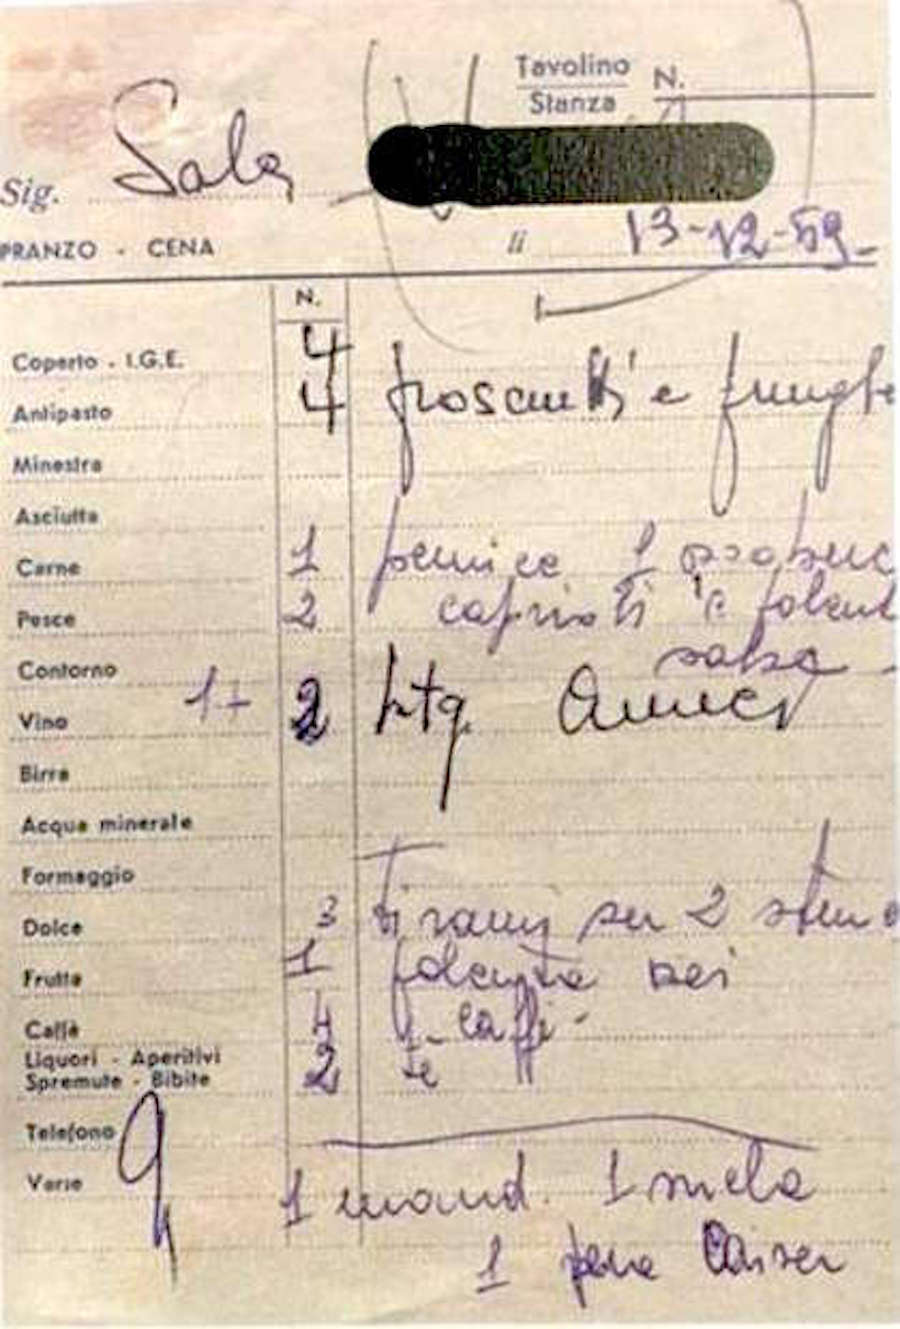 Tavolino N.
Stanza
Sig. Sala
PRANZO - CENA li 13-12-59
N.
Coperto - I.G.E. 4
Antipasto 4 prosciutti e funghi
Minestra
Asciutta
Carne 1 pernice 1
Pesce 2 caprioli e polent
Contorno salsa
Vino 1+ 2
Birra
Acqua minerale
Formaggio
Dolce 3 tiramì 2
Frutta 1
Caffè 4 caffè
Liquori - Aperitivi 2 te
Spremute - Bibite
Telefono
Varie 1 mand. 1 mela
1 pera